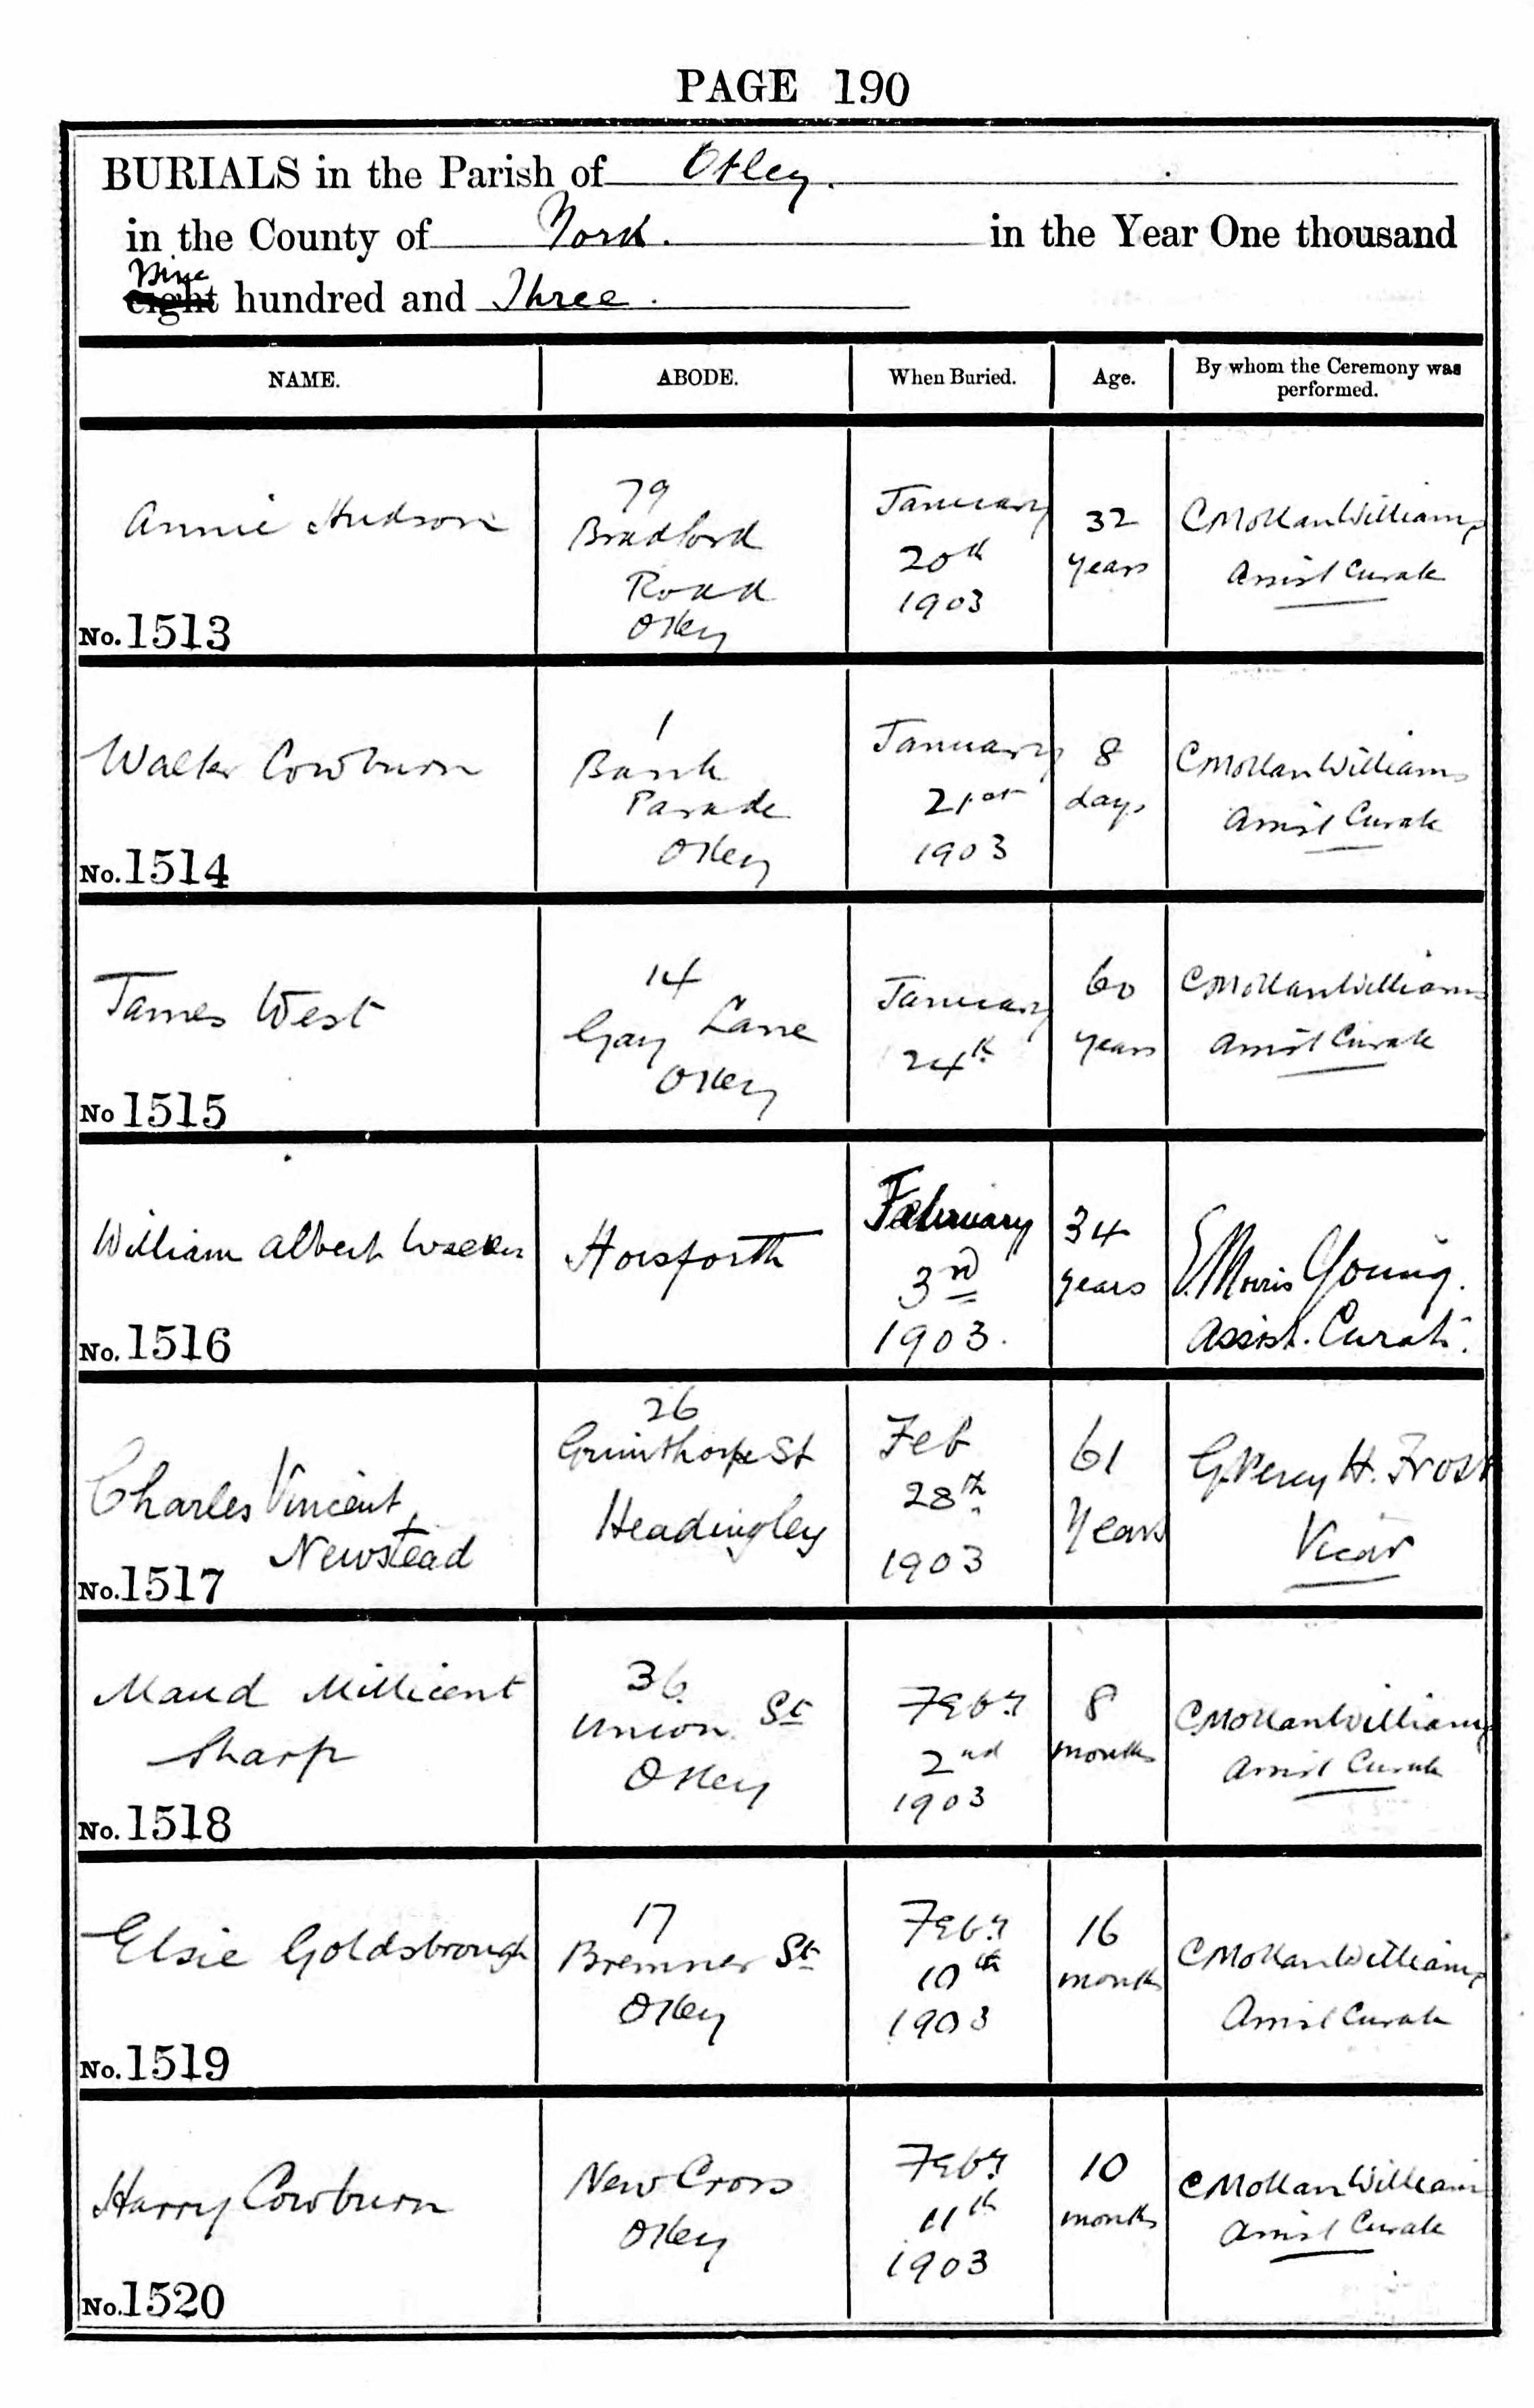 PAGE 190
BURIALS in the Parish of Otley.
in the County of York. in the Year One thousand
Nine
eight hundred and Three.
NAME. ABODE. When Buried. Age. By whom the Ceremony was performed.
Annie Hudson
No. 1513
79
Bradford
Road
Otley
January
20th
1903
32
years
C Mollan Williams
Assist Curate
Walter Cowburn
No. 1514
1
Bank
Parade
Otley
January
21st
1903
8
days
C Mollan Williams
Assist Curate
James West
No 1515
14
Gay Lane
Otley
January
24th
60
years
C Mollan Williams
Assist Curate
William Albert
No. 1516
Horsforth
February
3rd
1903.
34
years
E. Morris Young.
Assist. Curate.
Charles Vincent
Newstead
No. 1517
26
Grimthorpe St
Headingley
Feb
28th
1903
61
Years
G. Percy H. Frost
Vicar
Maud Millicent
Sharp
No. 1518
36
Union St
Otley
Feby
2nd
1903
8
months
C Mollan Williams
Assist Curate
Elsie Goldsbrough
No. 1519
17
Bremner St
Otley
Feby
10th
1903
16
months
C Mollan Williams
Assist Curate
Harry Cowburn
No. 1520
New Cross
Otley
Feby
11th
1903
10
months
C Mollan Williams
Assist Curate